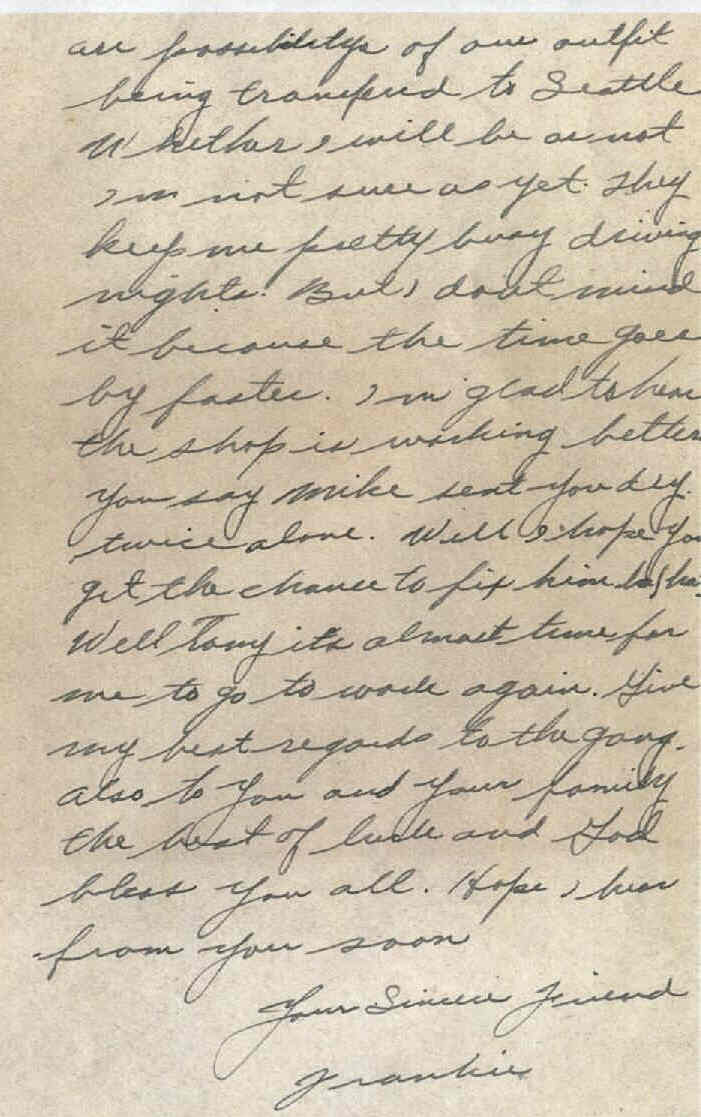 are possibilitys of our outfit
being transferd to Seattle
Whether I will be or not
I'm not sure as yet. They
keep me pretty busy driving
nights. But I don't mind
it because the time goes
by faster. I'm glad to hear
the shop is working better
You say Mike sent you dry
twice alone. Well I hope you
get the chance to fix him ha/ha
Well Tony its almost time for
me to go to work again. Give
my best regards to the gang.
also to you and your family
the best of luck and God
bless you all. Hope I hear
from you soon
Your Sincere Friend
Frankie